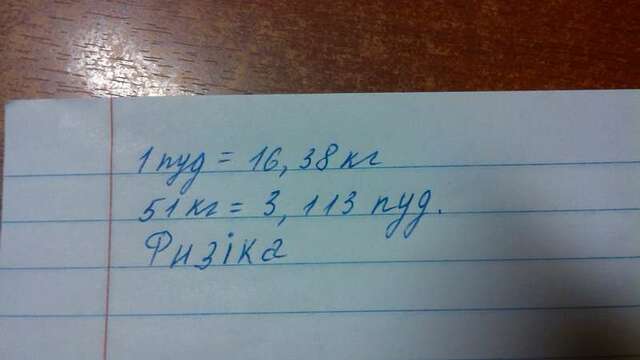 1 пуд = 16,38 кг
51 кг = 3,113 пуд.
Физіка